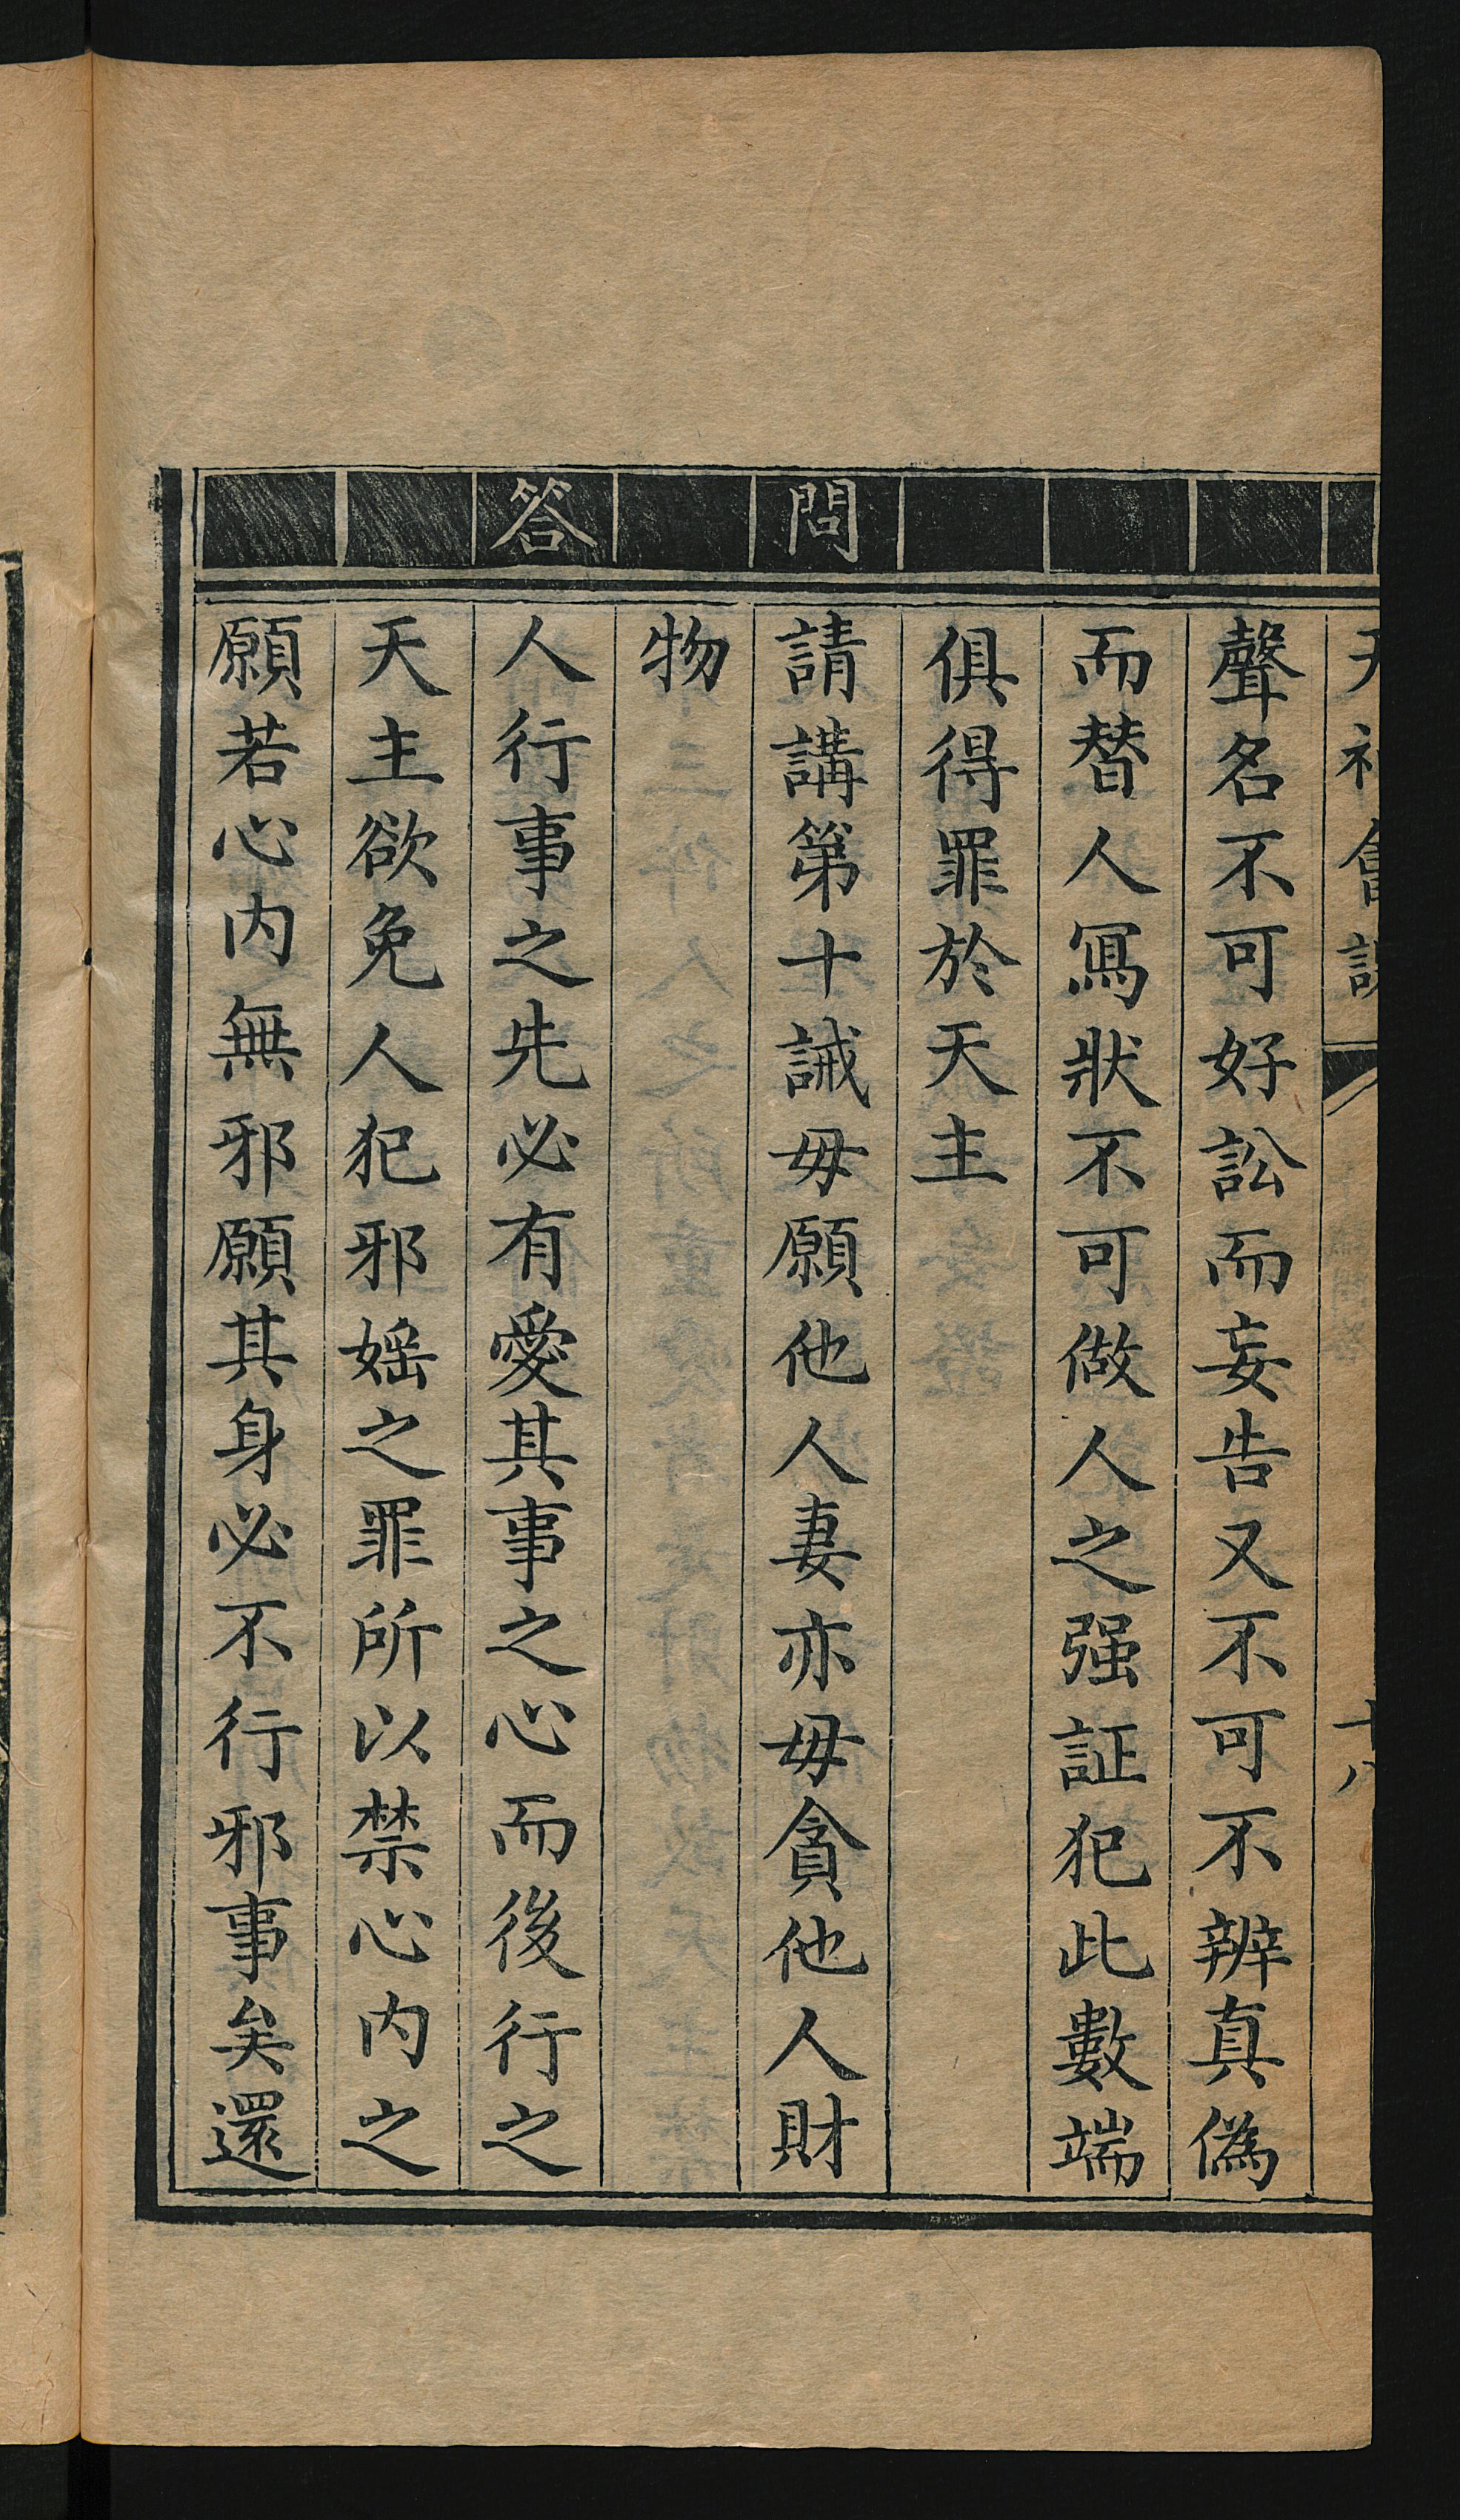 天神會課
十八
聲名不可好訟而妄告又不可不辨真偽
而替人寫狀不可做人之强証犯此數端
俱得罪於天主
問
請講第十誡毋願他人妻亦毋貪他人財
物
答
人行事之先必有愛其事之心而後行之
天主欲免人犯邪婬之罪所以禁心內之
願若心內無邪願其身必不行邪事矣還